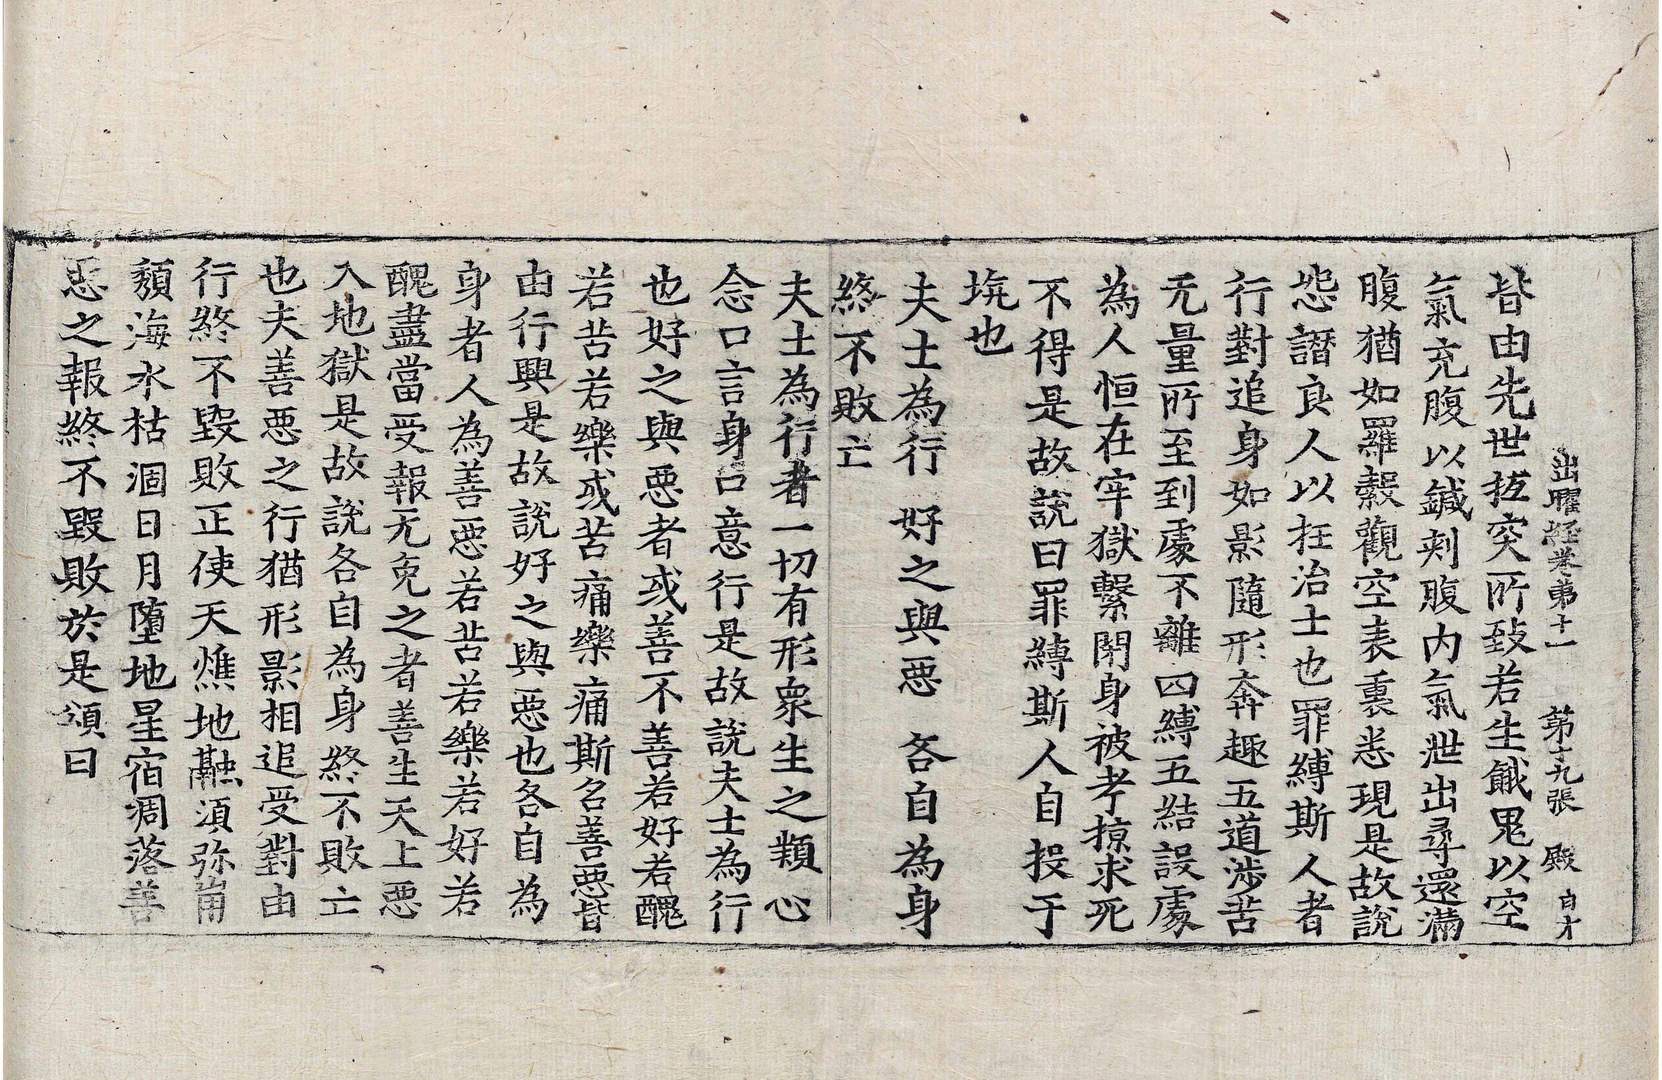 出曜経卷苐十一 第十九張 殿 自才
皆由先世抂突所致若生餓鬼以空
氣充腹以鍼刾腹内氣泄出尋還滿
腹猶如羅縠觀空表裏悉現是故說
怨譖良人以抂治士也罪縛斯人者
行對追身如影隨形奔趣五道涉苦
无量所至到處不離四縛五結設處
為人恒在牢獄繫閉身被考掠求死
不得是故說曰罪縛斯人自投于
坑也
夫士為行 好之與惡 各自為身
終不敗亡
夫士為行者一切有形衆生之類心
念口言身口意行是故說夫士為行
也好之與惡者或善不善若好若醜
若苦若樂或苦痛樂痛斯名善惡皆
由行興是故說好之與惡也各自為
身者人為善惡若苦若樂若好若
醜盡當受報无免之者善生天上惡
入地獄是故說各自為身終不敗亡
也夫善惡之行猶形影相追受對由
行終不毀敗正使天燋地融湏弥崩
頹海水枯涸日月墮地星宿凋落善
惡之報終不毀敗於是頌曰